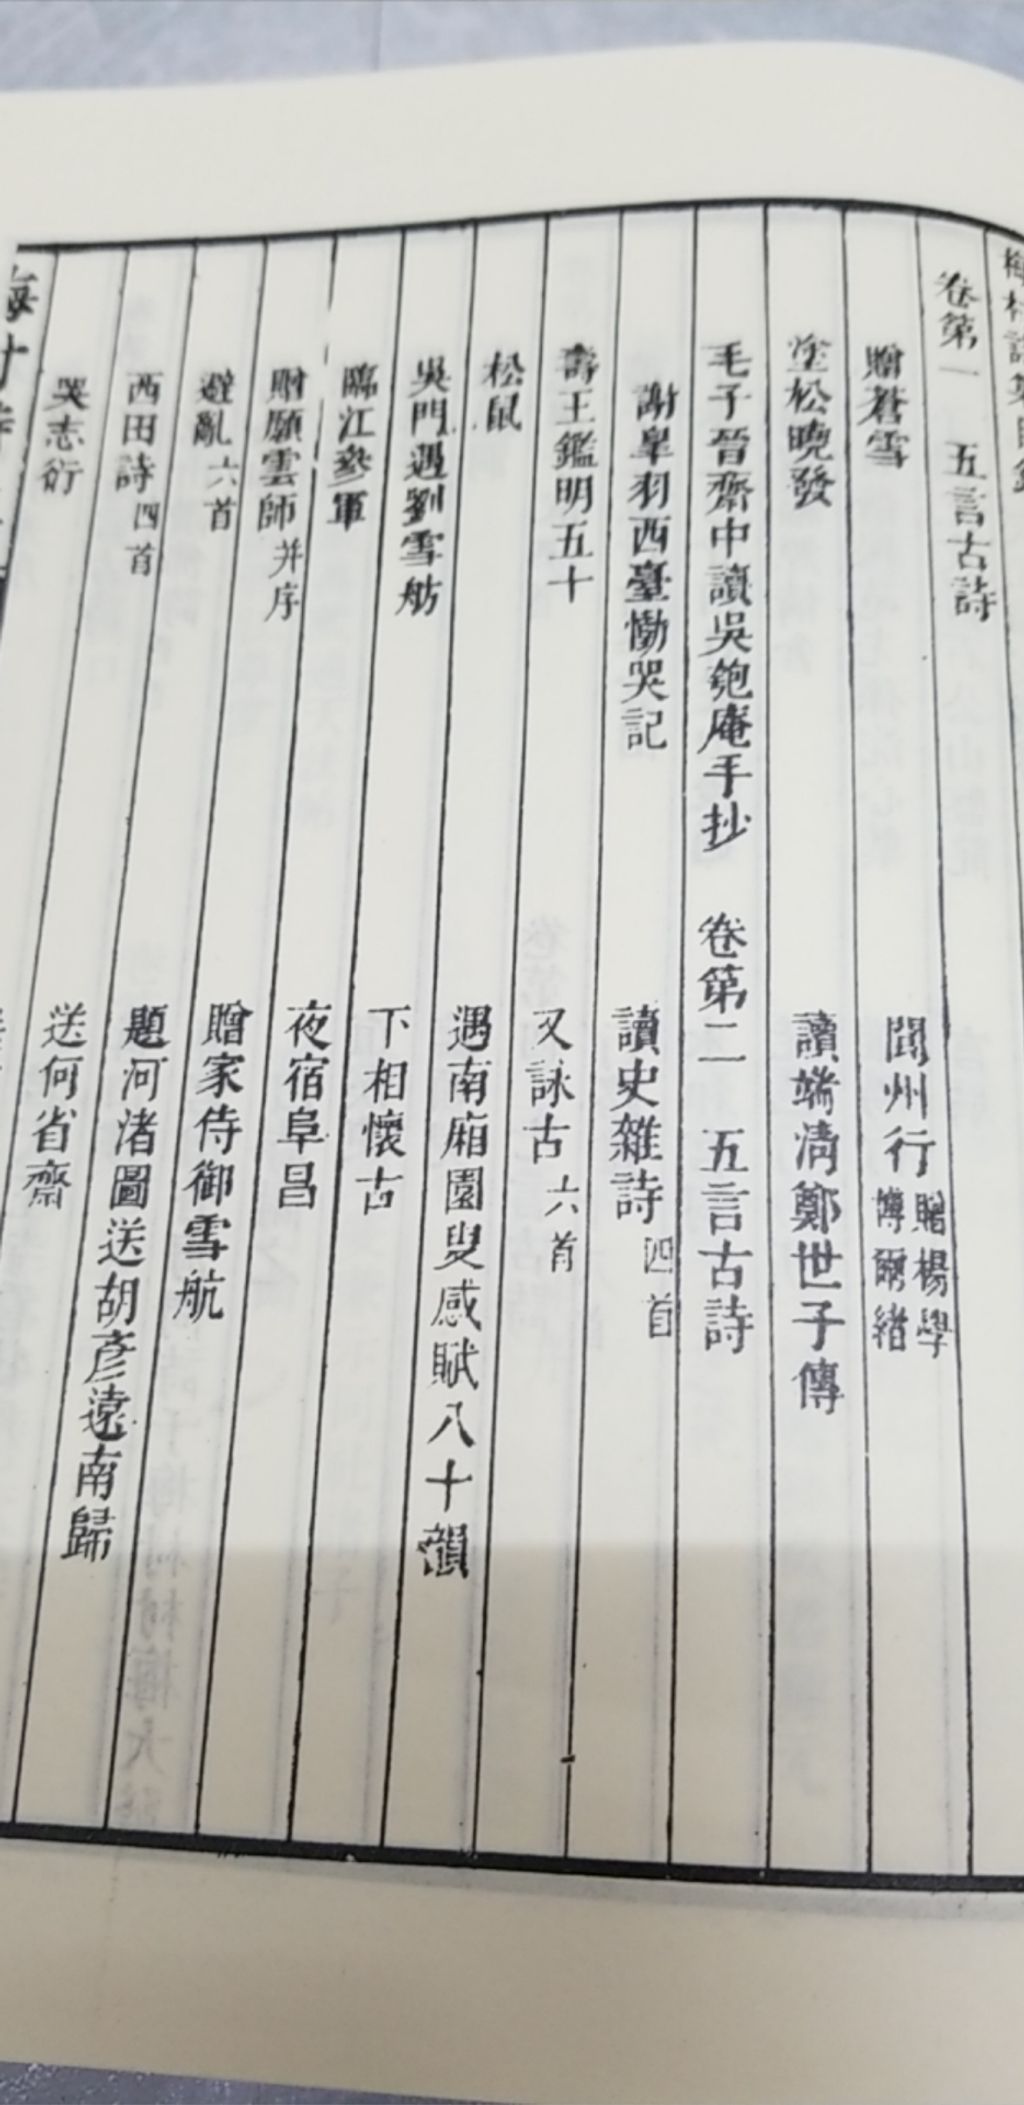 梅村詩集目錄
卷第一　五言古詩
贈蒼雪　閬州行 贈楊學博爾緒
塗松曉發　讀端清鄭世子傳
毛子晉齋中讀吳匏庵手抄　卷第二　五言古詩
謝皐羽西臺慟哭記　讀史雜詩 四首
壽王鑑明五十　又詠古 六首
松鼠　遇南廂園叟感賦八十韻
吳門遇劉雪舫　下相懷古
臨江參軍　夜宿阜昌
贈願雲師 并序　贈家侍御雪航
避亂 六首　題河渚圖送胡彥遠南歸
西田詩 四首　送何省齋
哭志衍